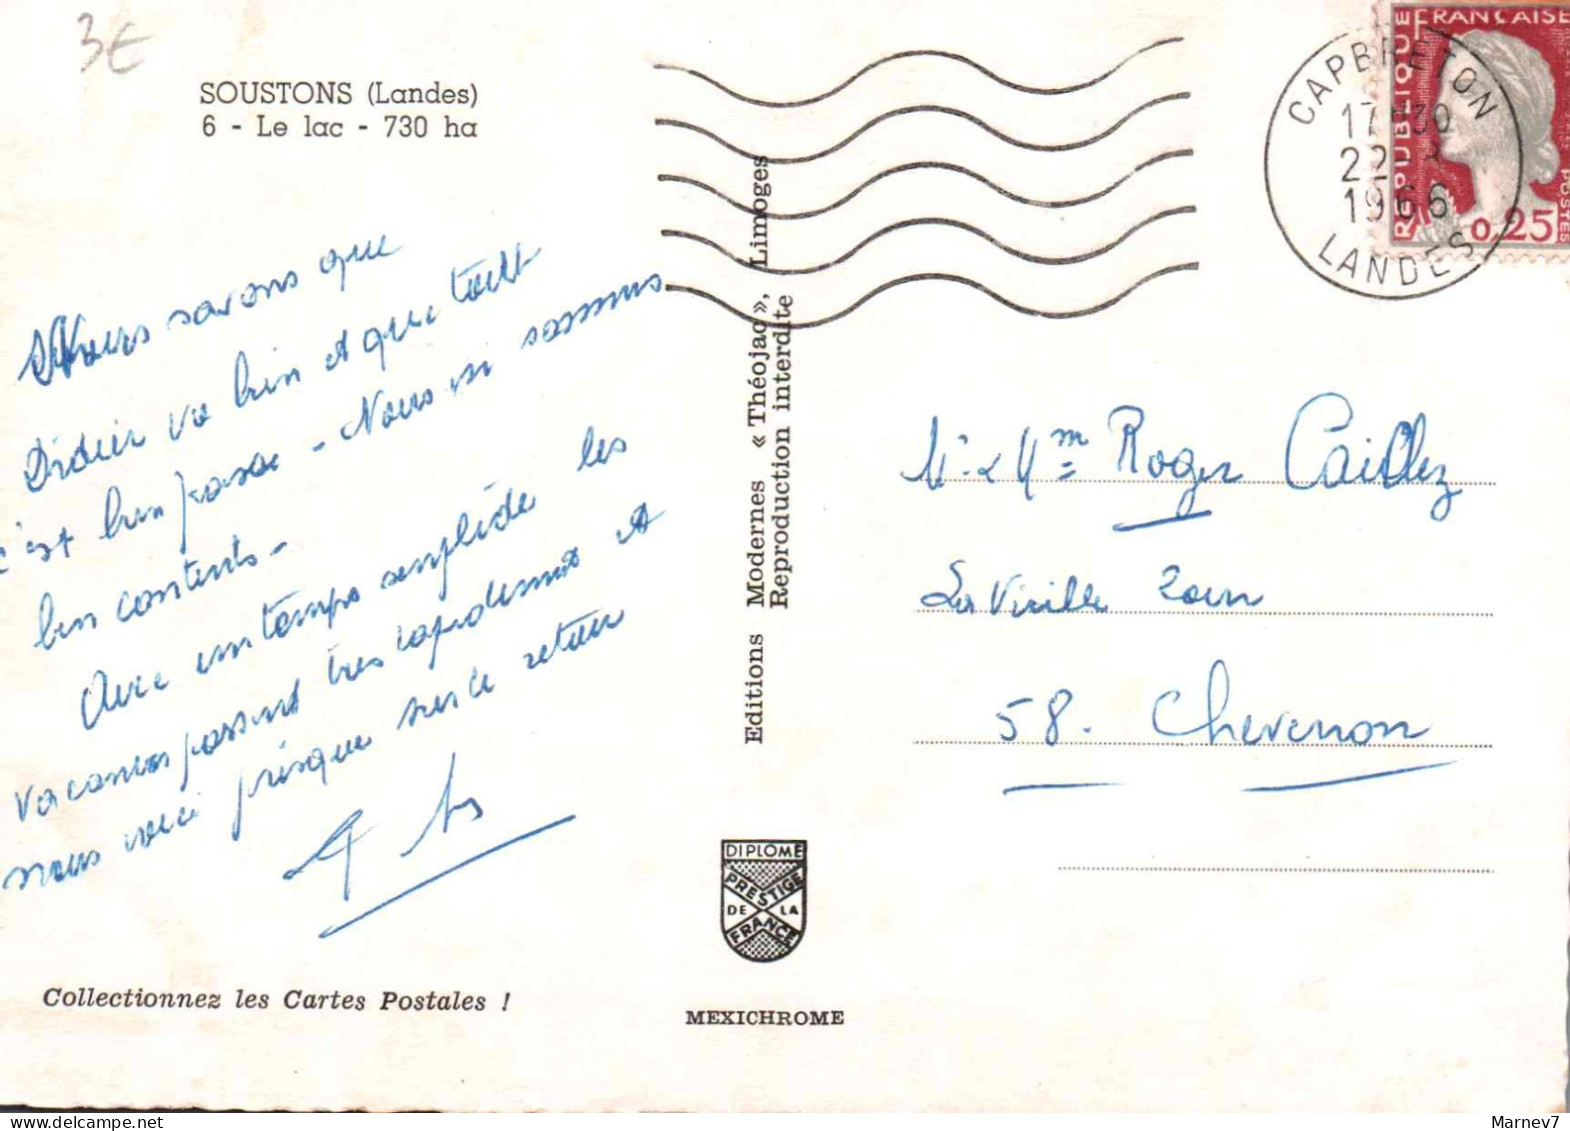 3€
SOUSTONS (Landes)
6 - Le lac - 730 ha
Nous savons que
Didier va bien et que tout
c'est bien passé - Nous en sommes
bien contents -
Avec un temps splendide les
vacances passent très rapidement et
nous voici presque sur le retour
Collectionnez les Cartes Postales !
Editions Modernes « Théojac », Limoges
Reproduction interdite
DIPLOME
PRESTIGE
DE LA
FRANCE
MEXICHROME
REPUBLIQUE FRANÇAISE
POSTES
0,25
CAPBRETON
17H30
22
1966
LANDES
Mr & Mme Roger Caillez
La Vieille
58. Chevenon
Marnev7